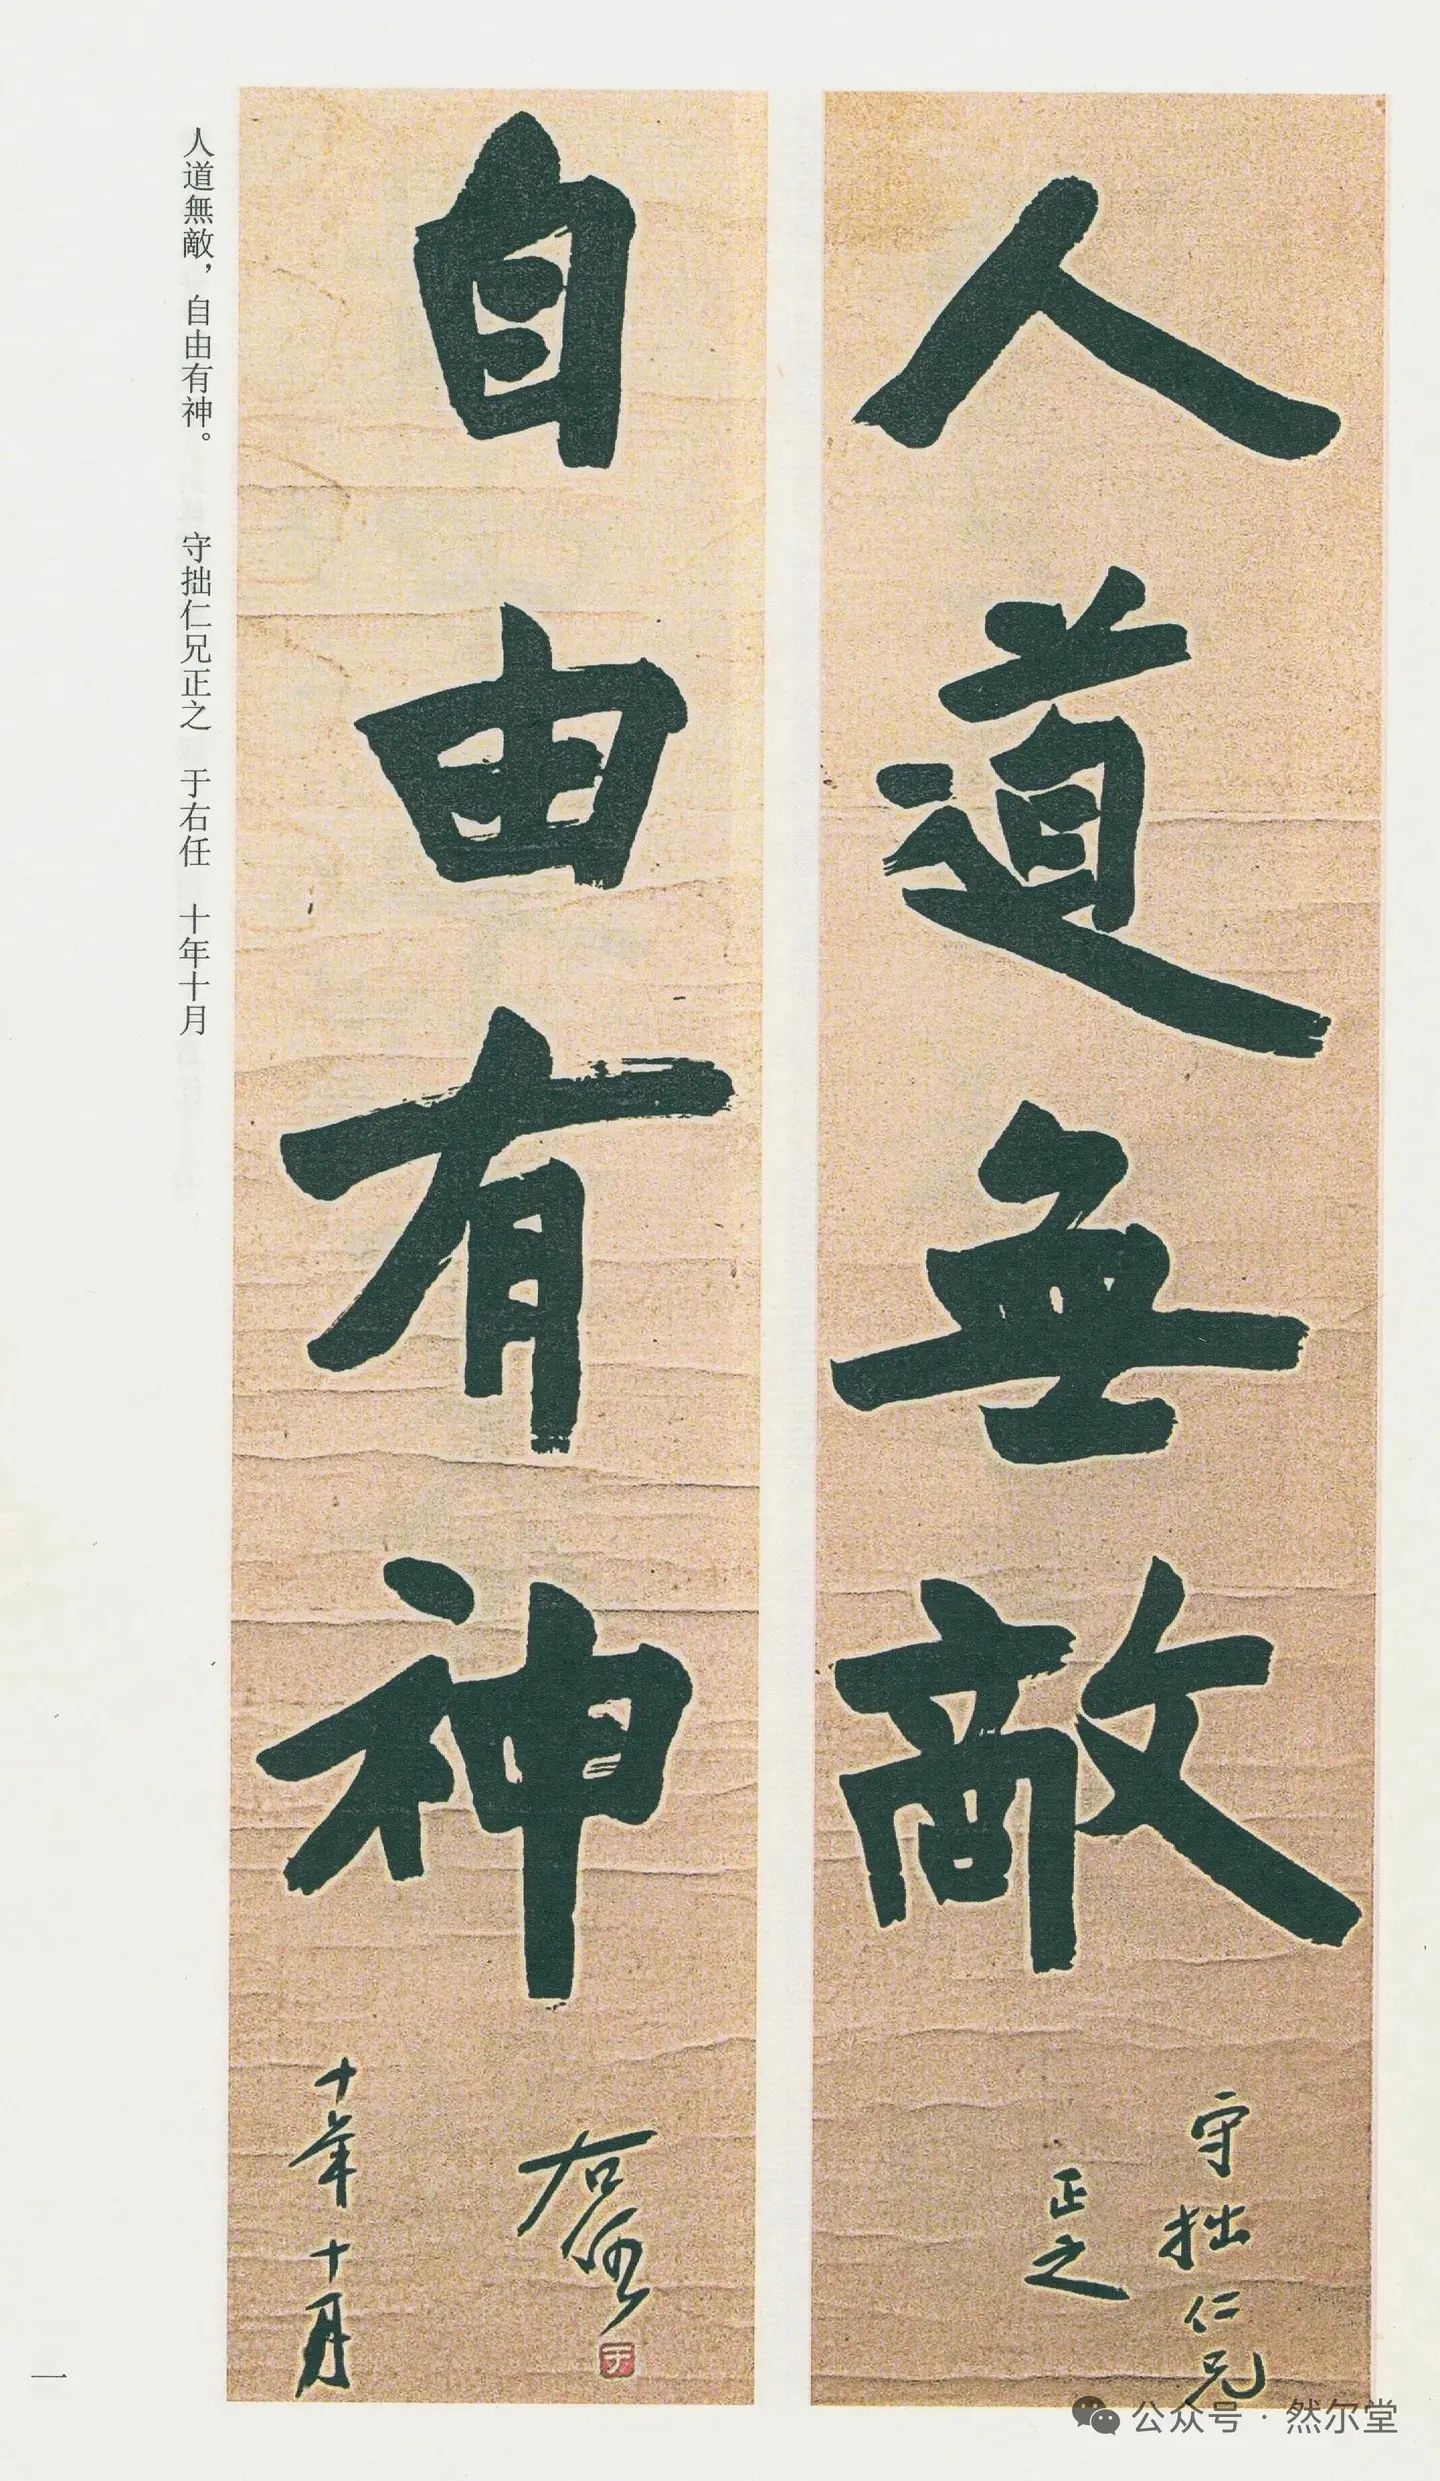 人道無敵
守拙仁兄
正之
自由有神
右任
十年十月
于
人道無敵，自由有神。 守拙仁兄正之 于右任 十年十月
一
公众号·然尔堂